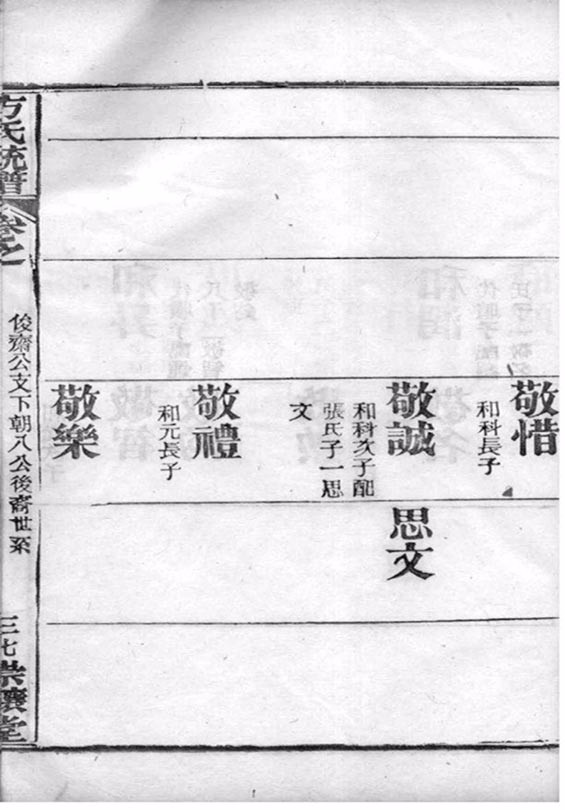 敬惜
和科長子
敬誠
和科次子配
張氏子一思
文
思文
敬禮
和元長子
敬樂
方氏統譜
卷之
俊齋公支下朝八公後裔世系
三七
堂